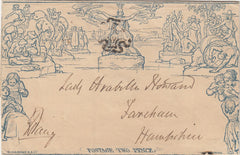 Lady Arabella Howard
Fareham
Hampshire
POSTAGE TWO PENCE.